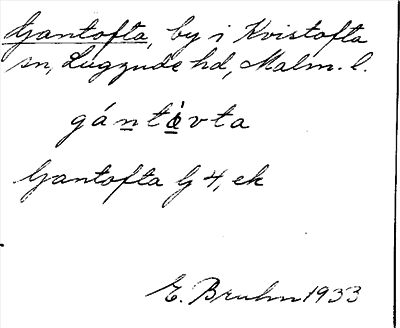 Gantofta, by i Kvistofta
sn, Luggude hd, Malm. l.
gántòvta
Gantofta G 4, ek
E. Bruhn 1933